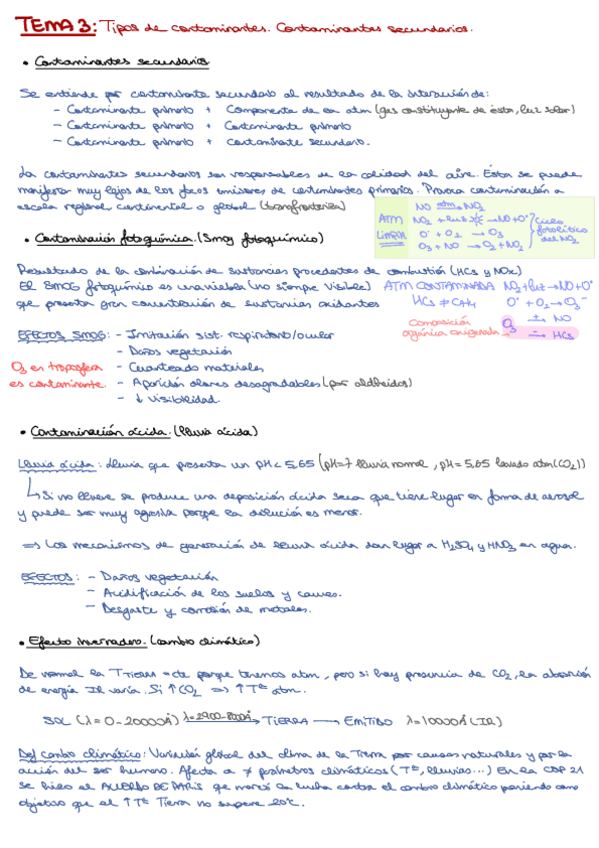 TEMA 3: Tipos de contaminantes. Contaminantes secundarios.
• Contaminantes secundarios
Se entiende por contaminante secundario al resultado de la interacción de:
- Contaminante primario + Componente de la atm (gas constituyente de ésta, luz solar)
- Contaminante primario + Contaminante primario
- Contaminante primario + contaminante secundario.
Los contaminantes secundarios son responsables de la calidad del aire. Esta se puede
manifestar muy lejos de los focos emisores de contaminantes primarios. Provoca contaminación a
escala regional continental o global (transfronteriza)
NO atm→ NO₂
ATM LIMPIA
NO₂ + luz → NO + O·
O· + O₂ → O₃
O₃ + NO → O₂ + NO₂
Ciclo fotolítico del NO₂
• Contaminación fotoquímica. (Smog fotoquímico)
Resultado de la combinación de sustancias procedentes de combustión (HCs y NOx)
El SMOG fotoquímico es una niebla (no siempre visible)
que presenta gran concentración de sustancias oxidantes
ATM CONTAMINADA NO₂ + luz → NO + O·
HCs ≠ CH₄ O· + O₂ → O₃
Composición orgánica oxigenada
O₃ + → NO
→ HCs
EFECTOS SMOG: - Irritación sist. respiratorio/ocular
- Daños vegetación
O₃ en troposfera - Cuarteado materiales
es contaminante. - Aparición olores desagradables (por aldheidos)
- ↓ Visibilidad.
• Contaminación ácida. (lluvia ácida)
Lluvia ácida: lluvia que presenta un pH < 5,65 (pH=7 lluvia normal, pH = 5,65 lavado atm (CO₂))
↳ Si no llueve se produce una deposición ácida seca que tiene lugar en forma de aerosol
y puede ser muy agresiva porque la dilución es menor.
⇒ Los mecanismos de generación de lluvia ácida dan lugar a H₂SO₄ y HNO₃ en agua.
EFECTOS: - Daños vegetación
- Acidificación de los suelos y cauces.
- Desgaste y corrosión de metales.
• Efecto invernadero. (cambio climático)
De normal la T TIERRA = cte porque tenemos atm, pero si hay presencia de CO₂, la absorción
de energía IR varía. Si ↑ CO₂ ⇒ ↑ Tª atm.
SOL (λ = 0-20000Å) λ=2900-8000Å → TIERRA → EMITIDO λ=10000Å (IR)
Def cambio climático: Variación global del clima de la Tierra por causas naturales y por la
acción del ser humano. Afecta a ≠ parámetros climáticos (Tª, lluvias...) En la COP 21
se hizo el ACUERDO DE PARÍS que marcó la lucha contra el cambio climático poniendo como
objetivo que el ↑ Tª Tierra no supere 2ºC.